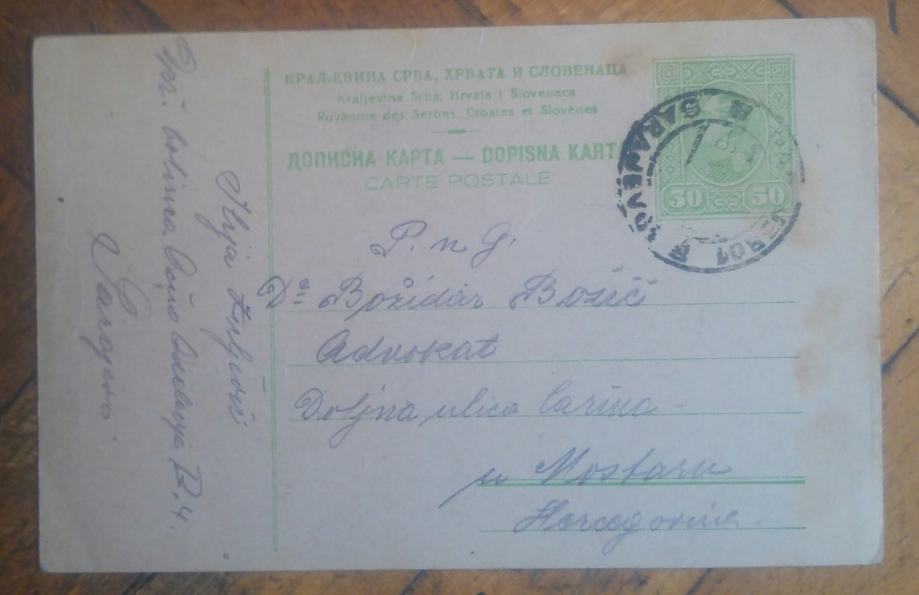 КРАЉЕВИНА СРБА, ХРВАТА И СЛОВЕНАЦА
Kraljevina Srba, Hrvata i Slovenaca
Royaume des Serbes, Croates et Slovènes
ДОПИСНА КАРТА — DOPISNA KARTA
CARTE POSTALE
50 50
SARAJEVO
P. n g.
Dr Božidar Božić
Advokat
Doljna ulica Carina
u Mostaru
Hercegovina
Ilja
B. 4.
Sarajevo.